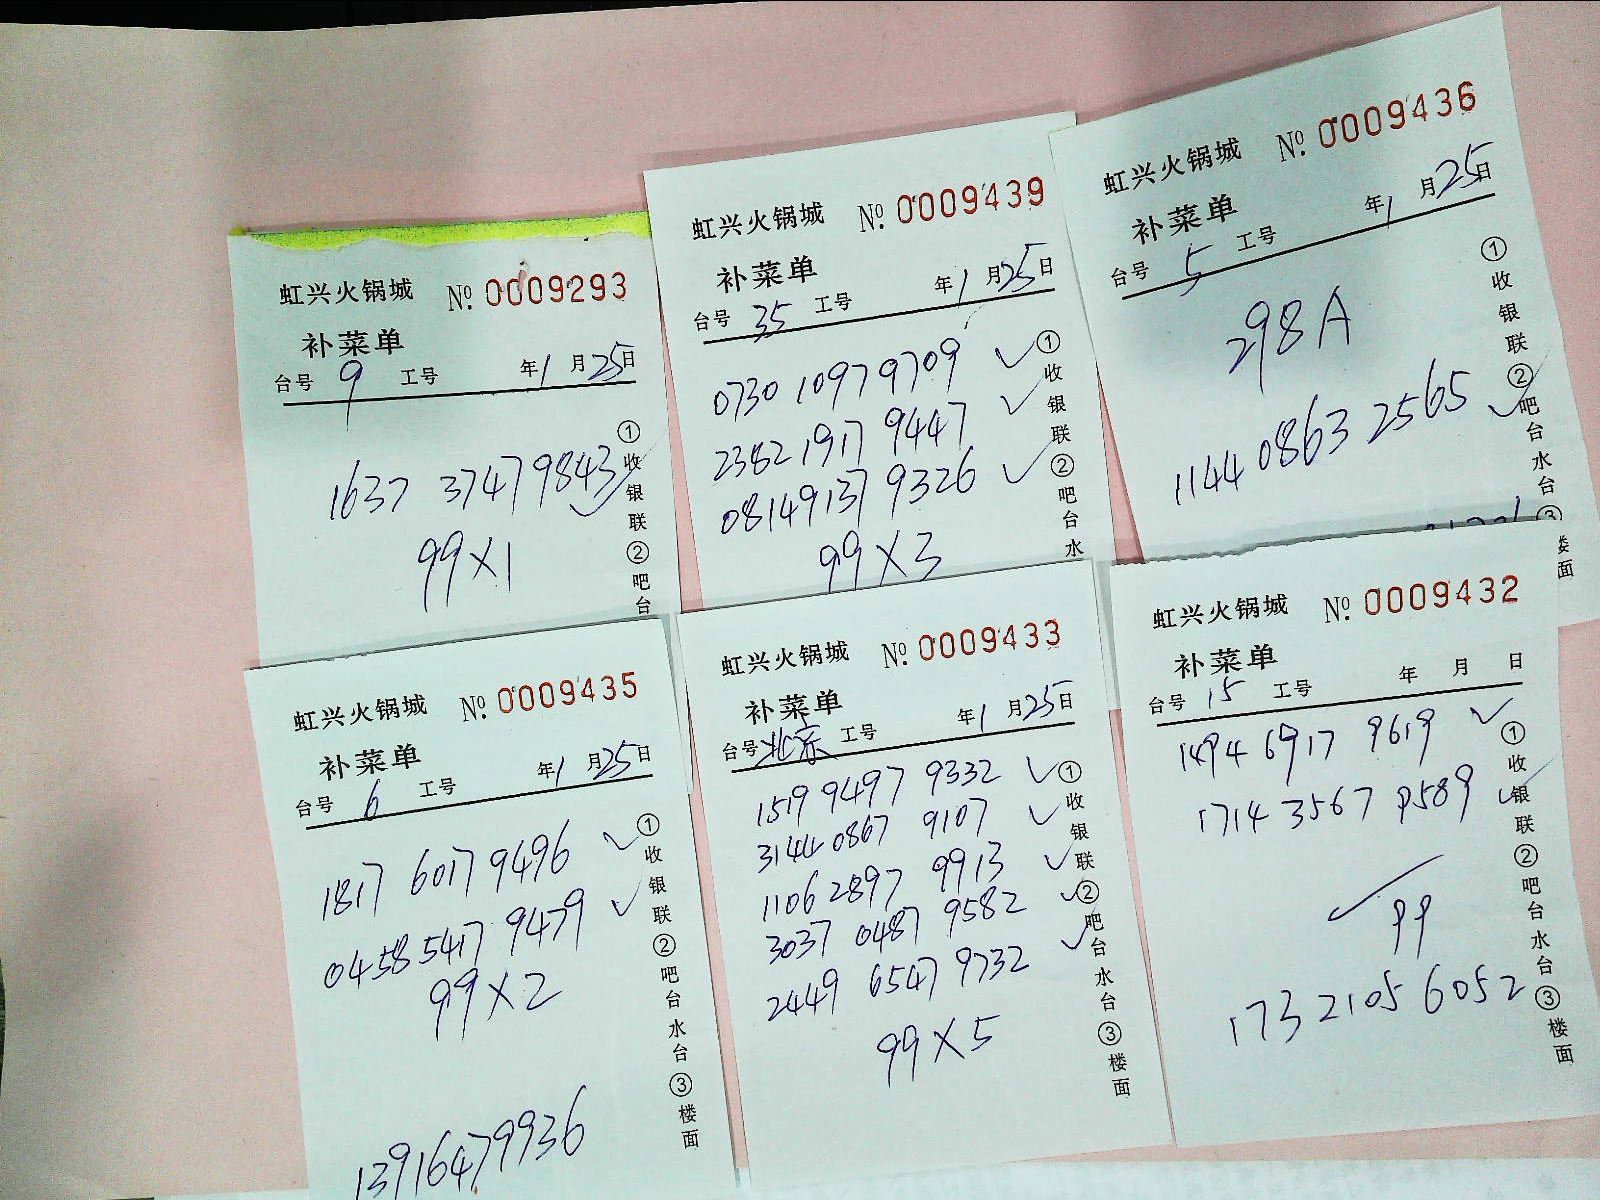 虹兴火锅城 № 0009293
补菜单
台号 9 工号 年 1 月 25 日
1637 3747 9843
99×1
①收银联②吧台
虹兴火锅城 № 0009439
补菜单
台号 35 工号 年 1 月 25 日
0730 1097 9709
2382 1917 9447
0814 9137 9326
99×3
①收银联②吧台水
虹兴火锅城 № 0009436
补菜单
台号 5 工号 年 1 月 25 日
298A
1144 0863 2565
①收银联②吧台水台③楼面
虹兴火锅城 № 0009435
补菜单
台号 6 工号 年 1 月 25 日
1817 6017 9496
0458 5417 9479
99×2
13916479936
①收银联②吧台水台③楼面
虹兴火锅城 № 0009433
补菜单
台号 北京 工号 年 1 月 25 日
1519 9497 9332
3144 0867 9107
1106 2897 9913
3037 0487 9582
2449 6547 9732
99×5
①收银联②吧台水台③楼面
虹兴火锅城 № 0009432
补菜单
台号 15 工号 年 月 日
1494 6917 9619
1714 3567 9589
99
173 2105 6052
①收银联②吧台水台③楼面